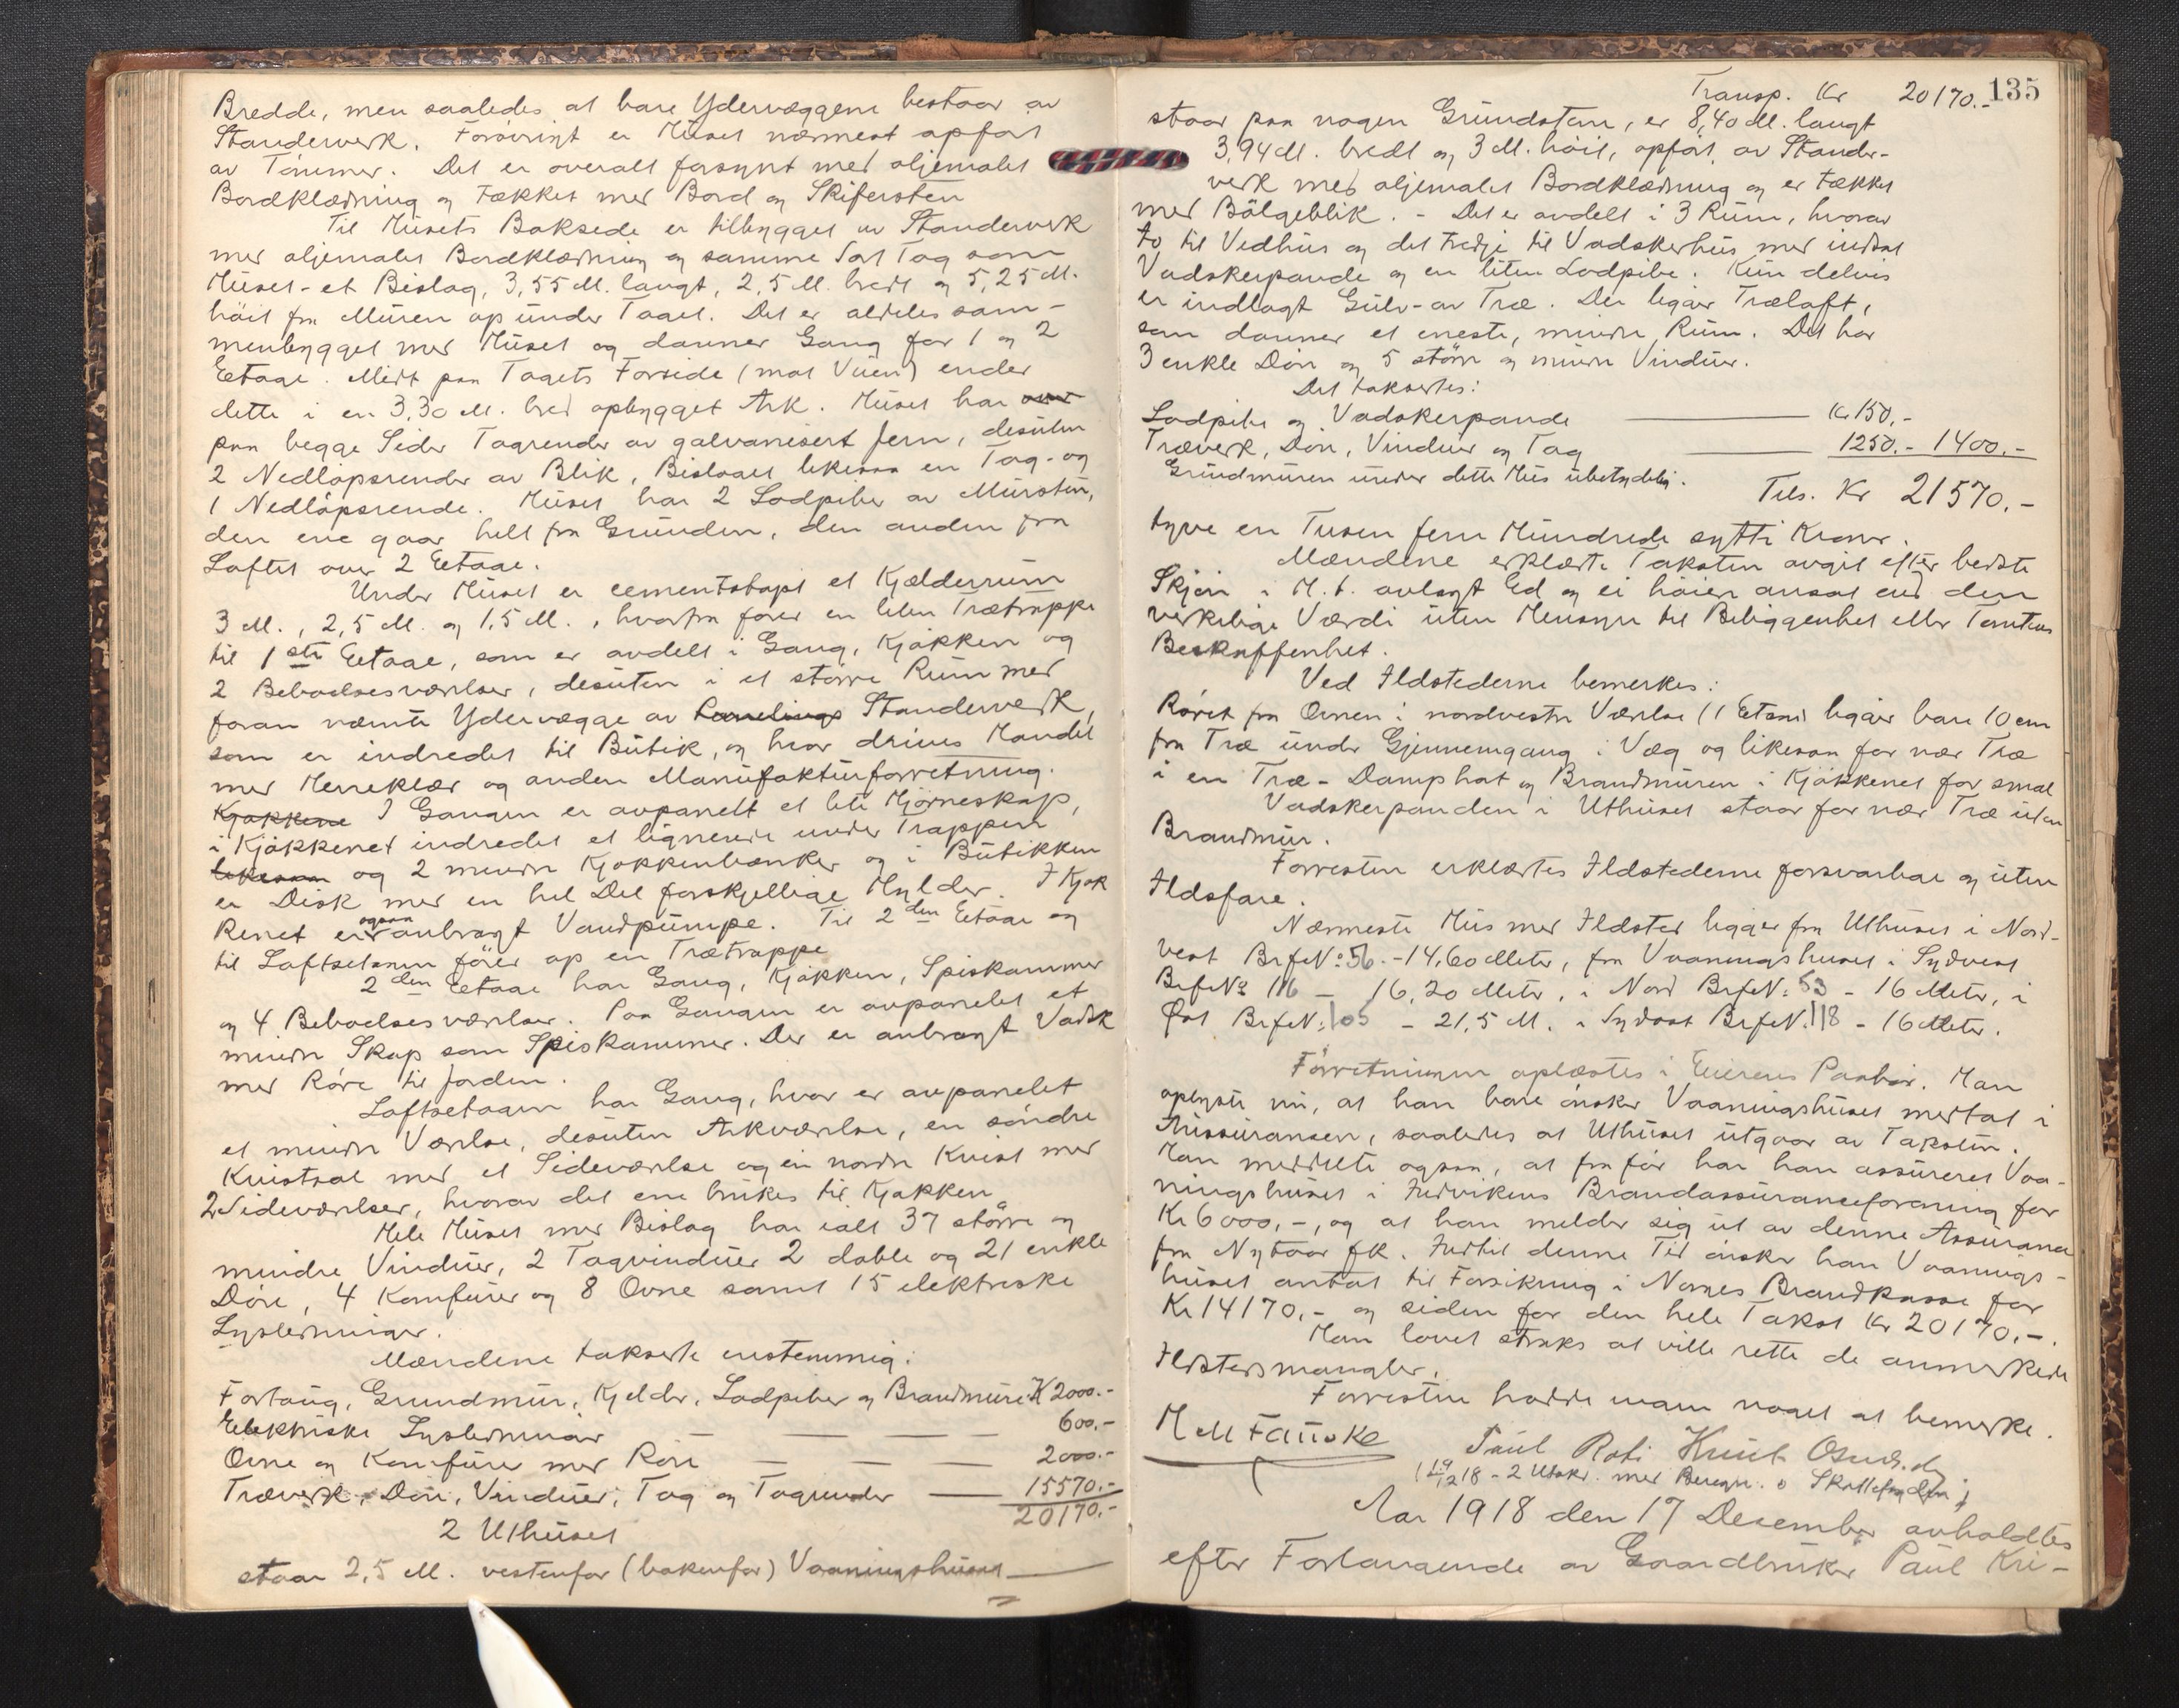 Bredde, men saaledes at bare Ydervæggene bestaar av
Standerverk. Forøvrigt er Huset nærmest opført
av Tømmer. Det er overalt forsynt med oljemalet
Bordklædning og tækket med Bord og Skifersten
Til Husets Bakside er tilbygget av Standerverk
med oljemalet Bordklædning og samme Sort Tag som
Huset - et Bislag, 3,55 M. langt, 2,5 M. bredt og 5,25 M.
høit fra Muren op under Taget. Det er aldeles sam-
menbygget med Huset og danner Gang for 1 og 2
Eetage. Midt paa Tagets Forside (mot Veien) ender
dette i en 3,30 M. bred opbygget Ark. Huset har over
paa begge Sider Tagrender av galvanisert Jern, desuten
2 Nedløpsrender av Blik, Bislaget likesaa en Tag- og
1 Nedløpsrende. Huset har 2 Lodpiber av Mursten,
den ene gaar helt fra Grunden, den anden fra
Loftet over 2 Eetage.
Under Huset er cementstøpt et Kjælderrum
3 M., 2,5 M. og 1,5 M., hvorfra fører en liten Trætrappe
til 1ste Eetage, som er avdelt i Gang, Kjøkken og
2 Beboelsesværelser, desuten i et større Rum med
foran nævnte Ydervægge av Standerverk,
som er indredet til Butik, og hvor drives Handel
med Herreklær og anden Manufakturforretning.
Kjøkkene I Gangen er avpanelt et lite Hjørneskap,
i Kjøkkenet indredet et lignende under Trappen
likesaa og 2 mindre Kjøkkenbænker og i Butikken
er Disk med en hel Del forskjellige Hylder. I Kjøk
kenet er ogsaa anbragt Vandpumpe. Til 2den Eetage og
til Loftsetagen fører op en Trætrappe
2den Eetage har Gang, Kjøkken, Spiskammer
og 4 Beboelsesværelser. Paa Gangen er avpanelet et
mindre Skap som Spiskammer. Der er anbragt Vadsk
med Røre til Jorden.
Loftsetagen har Gang, hvor er avpanelet
et mindre Værelse, desuten Arkværelse, en søndre
Kvistsal med et Sideværelse og en nordre Kvist med
2 Sideværelser, hvorav det ene brukes til Kjøkken.
Hele Huset med Bislag har ialt 37 større og
mindre Vinduer, 2 Tagvinduer 2 doble og 21 enkle
Døre, 4 Komfurer og 8 Ovne samt 15 elektriske
Lysledninger.
Mændene takserte enstemmig:
Fortaug, Grundmur, Kjelder, Lodpiber og Brandmure K 2000.-
Elektriske Lysledninger 600.-
Ovne og Komfurer med Røre 2000.-
Træverk, Døre, Vinduer, Tag og Tagrender 15570.-
20170.-
2 Uthuset
staar 2,5 M. vestenfor (bakenfor) Vaaningshuset
135
Transp. Kr 20170.-
staar paa nogen Grundstene, er 8,40 M. langt
3,94 M. bredt og 3 M. høit, opført av Stander-
verk med oljemalet Bordklædning og er tækket
med Bølgeblik. - Det er avdelt i 3 Rum, hvorav
to til Vedhus og det tredje til Vadskerhus med indsat
Vadskerpande og en liten Lodpibe. Kun delvis
er indlagt Gulv - av Træ. Der ligger Træloft,
som danner et eneste, mindre Rum. Det har
3 enkle Døre og 5 større og mindre Vinduer.
Det takseres:
Lodpibe og Vadskerpande Kr 150.-
Træverk, Døre, Vinduer og Tag 1250.- 1400.-
Grundmuren under dette Hus ubetydelig.
Tils. Kr 21570.-
tyve en Tusen fem Hundrede sytti Kroner.
Mændene erklærte Taksten avgit efter bedste
Skjøn i H. t. avlagt Ed og ei høiere ansat end den
verkelige Værdi uten Hensyn til Beliggenhet eller Tomtens
Beskaffenhet.
Ved Ildstederne bemerkes:
Røret fra Ovnen i nordvestre Værelse (1 Etage) ligger bare 10 cm
fra Træ under Gjennemgang i Væg og likesaa for nær Træ
i en Træ - Damphat og Brandmuren i Kjøkkenet for smal
Vadskerpanden i Uthuset staar for nær Træ uten
Brandmur.
Forresten erklærtes Ildstederne forsvarbare og uten
Ildsfare.
Nærmeste Hus med Ildsted ligger fra Uthuset i Nord-
vest Brfno 56. - 14,60 Meter, fra Vaaningshuset i Sydvest
Brfno 116 - 16,20 Meter, i Nord Brfno 53 - 16 Meter, i
Øst Brfno 105 - 21,5 M. i Sydøst Brfno 118 - 16 Meter.
Forretningen oplæstes i Eierens Paahør. Han
oplyste nu, at han bare ønsker Vaaningshuset medtat i
Assuransen, saaledes at Uthuset utgaar av Taksten.
Han meddelte ogsaa, at fra før har han assureret Vaa-
ningshuset i Indvikens Brandassuranceforening for
Kr 6000,-, og at han melder sig ut av denne Assurance
fra Nytaar fk. Indtil denne Tid ønsker han Vaanings-
huset antat til Forsikring i Norges Brandkasse for
Kr 14170,- og siden for den hele Takst Kr 20170,-.
Han lovet straks at ville rette de anmerkede
Ildstedsmangler.
Forresten hadde ingen noget at bemerke.
Paul Roti Knut
2 Utskr. med Beregn.
Aar 1918 den 17 December avholdtes
efter Forlangende av Gaardbruker Paul Kri-